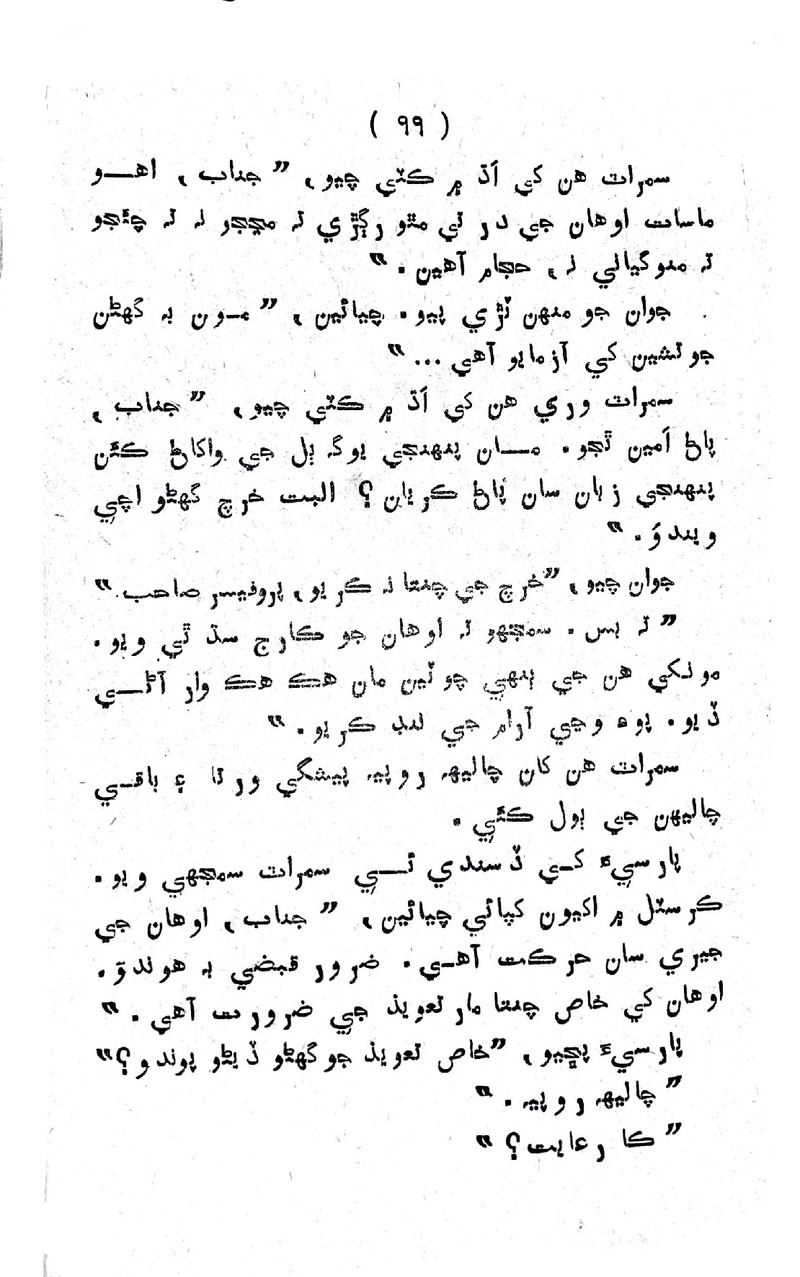 ( ٩٩ )
سمرات هن کي اَڌ ۾ ڪٽي چيو، ”جناب، اهو
ماسات اوهان جي در تي مٿو رڳڙي ته مڃجو نه ته چئجو
ته منوگيالي نه، حجام آهين.“
جوان جو منهن ٽڙي پيو. چيائين، ”مون به گهڻن
جوتشين کي آزمايو آهي ...“
سمرات وري هن کي اَڌ ۾ ڪٽي چيو، ”جناب،
پاڻ اَمين ٿجو. مان پنهنجي يوگ ٻل جي واکاڻ ڪئن
پنهنجي زبان سان پاڻ ڪريان؟ البت خرچ گهڻو اچي
ويندوَ.“
جوان چيو، ”خرچ جي چنتا نه ڪريو، پروفيسر صاحب.“
”ته بس. سمجهو ته اوهان جو ڪارج سڌ ٿي ويو.
مونکي هن جي ٻنهي چوٽين مان هڪ هڪ وار آڻي
ڏيو. پوءِ وڃي آرام جي ننڊ ڪريو.“
سمرات هن کان چاليهه روپيه پيشگي ورتا ۽ باقي
چاليهن جي ٻول ڪئي.
پارسيءَ کي ڏسندي ئي سمرات سمجهي ويو.
ڪرسٽل ۾ اکيون کپائي چيائين، ”جناب، اوهان جي
جيري سان حرڪت آهي. ضرور قبضي به هوندوَ.
اوهان کي خاص چنتا مار تعويذ جي ضرورت آهي.“
پارسيءَ پڇيو، ”خاص تعويذ جو گهڻو ڏيڻو پوندو؟“
”چاليهه روپيه.“
”ڪا رعايت؟“